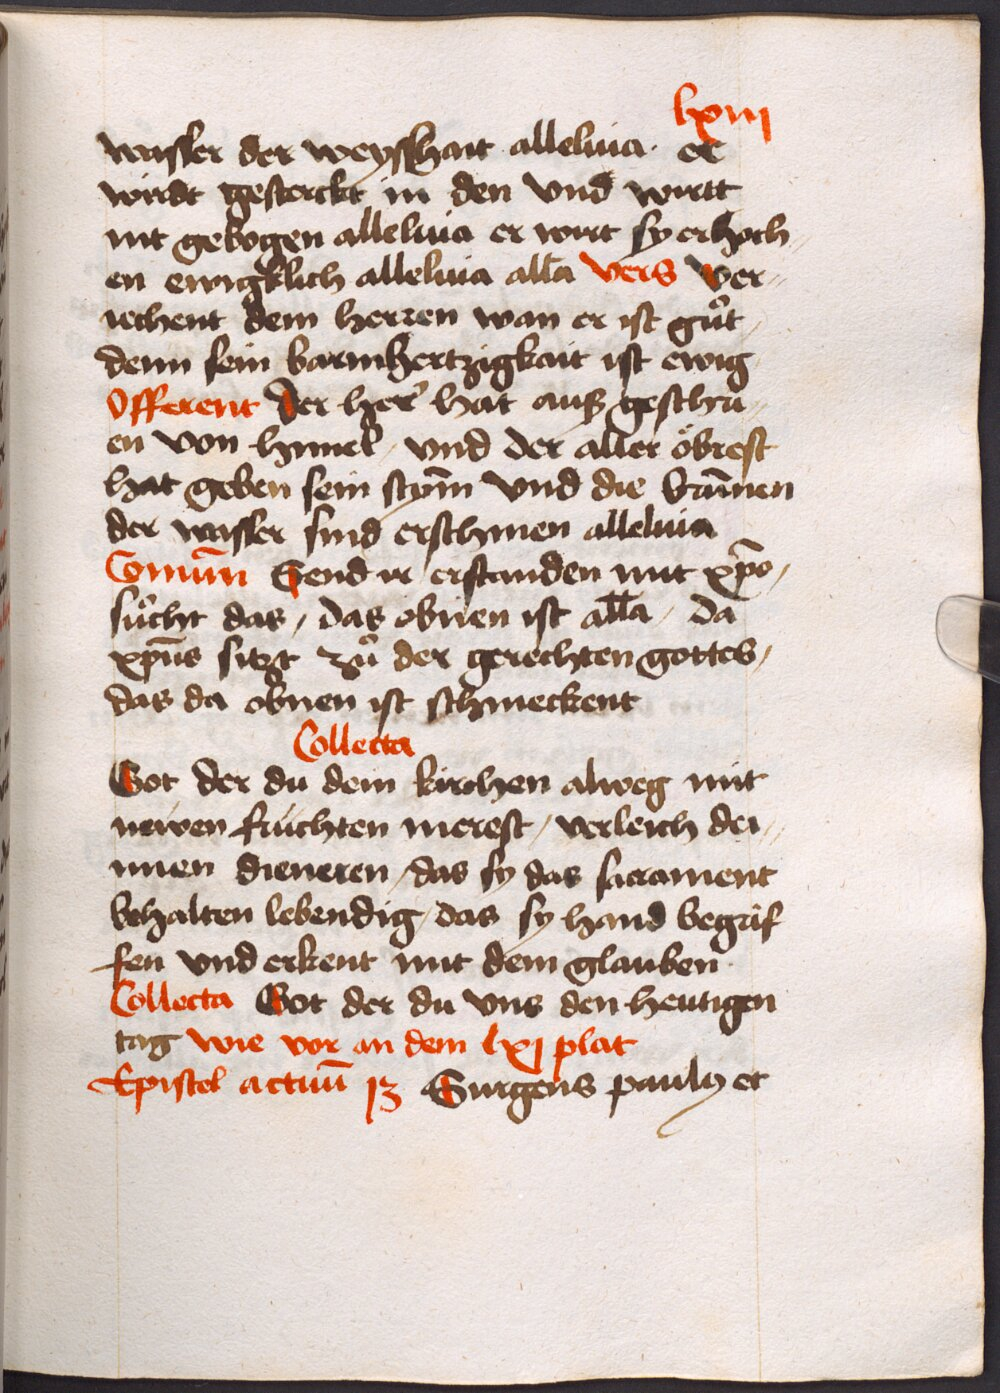 lxiii
wasser der weysshait alleluia · er
wirdt gesterckt in den vnd wirtt
nit gebogen alleluia er wirt sy erhoch
en ewigklich alleluia alla vers ver
iechent dem herren wan er ist gůt
denn sein barmhertzigkait ist ewig
Offerent Der her hat auß geschri
en von himel / vnd der aller öbrest
hat geben sein stym̄ vnd die brun̄en
der wasser sind erschinen alleluia
Comun̄ Send ir erstanden mit xp̄o /
sůcht das / das obnen ist alla / da
xp̄us sitzt zů der gerechten gottes /
das da obnen ist schmeckent
Collecta
Got der du dein kirchen alweg mit
newen früchten merest / verleich dei
nnen dieneren / das sy das sacrament
behalten lebendig / das sy hand begrif
fen vnd erkent mit dem glauben
Collecta Got der du vns den heutigen
tag wie vor an dem lxj plat
Epistel actuū 13 Surgens paulꝯ et